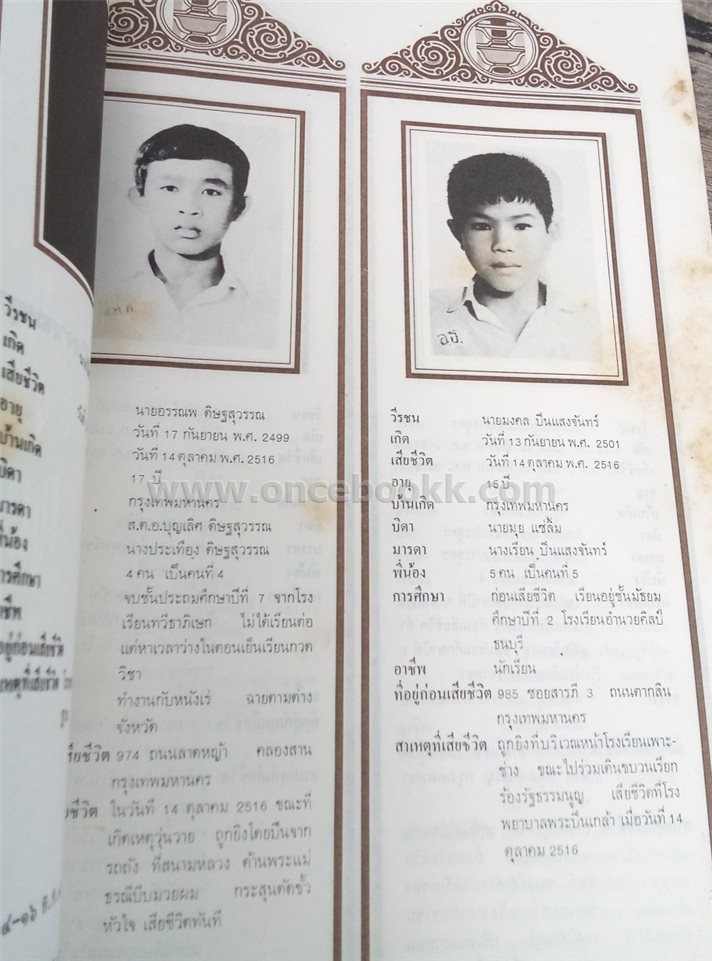 วีรชน
เกิด
เสียชีวิต
อายุ
บ้านเกิด
บิดา
มารดา
พี่น้อง
การศึกษา
นายอรรณพ ดิษฐสุวรรณ
วันที่ 17 กันยายน พ.ศ. 2499
วันที่ 14 ตุลาคม พ.ศ. 2516
17 ปี
กรุงเทพมหานคร
ส.ต.อ.บุญเลิศ ดิษฐสุวรรณ
นางประเทือง ดิษฐสุวรรณ
4 คน เป็นคนที่ 4
จบชั้นประถมศึกษาปีที่ 7 จากโรง
เรียนทวีธาภิเษก ไม่ได้เรียนต่อ
แต่หาเวลาว่างในตอนเย็นเรียนกวด
วิชา
ทำงานกับหนังเร่ ฉายตามต่าง
จังหวัด
สียชีวิต 974 ถนนลาดหญ้า คลองสาน
กรุงเทพมหานคร
ชีวิต ในวันที่ 14 ตุลาคม 2516 ขณะที่
เกิดเหตุวุ่นวาย ถูกยิงโดยปืนจาก
รถถัง ที่สนามหลวง ด้านพระแม่
ธรณีบีบมวยผม กระสุนตัดขั้ว
หัวใจ เสียชีวิตทันที
อธ.
วีรชน นายมงคล ปิ่นแสงจันทร์
เกิด วันที่ 13 กันยายน พ.ศ. 2501
เสียชีวิต วันที่ 14 ตุลาคม พ.ศ. 2516
อายุ 15 ปี
บ้านเกิด กรุงเทพมหานคร
บิดา นายมุย แซ่ลิ้ม
มารดา นางเรียน ปิ่นแสงจันทร์
พี่น้อง 5 คน เป็นคนที่ 5
การศึกษา ก่อนเสียชีวิต เรียนอยู่ชั้นมัธยม
ศึกษาปีที่ 2 โรงเรียนอำนวยศิลป์
ธนบุรี
อาชีพ นักเรียน
ที่อยู่ก่อนเสียชีวิต 985 ซอยสารภี 3 ถนนตากสิน
กรุงเทพมหานคร
สาเหตุที่เสียชีวิต ถูกยิงที่บริเวณหน้าโรงเรียนเพาะ-
ช่าง ขณะไปร่วมเดินขบวนเรียก
ร้องรัฐธรรมนูญ เสียชีวิตที่โรง
พยาบาลพระปิ่นเกล้า เมื่อวันที่ 14
ตุลาคม 2516
www.oncebookk.com